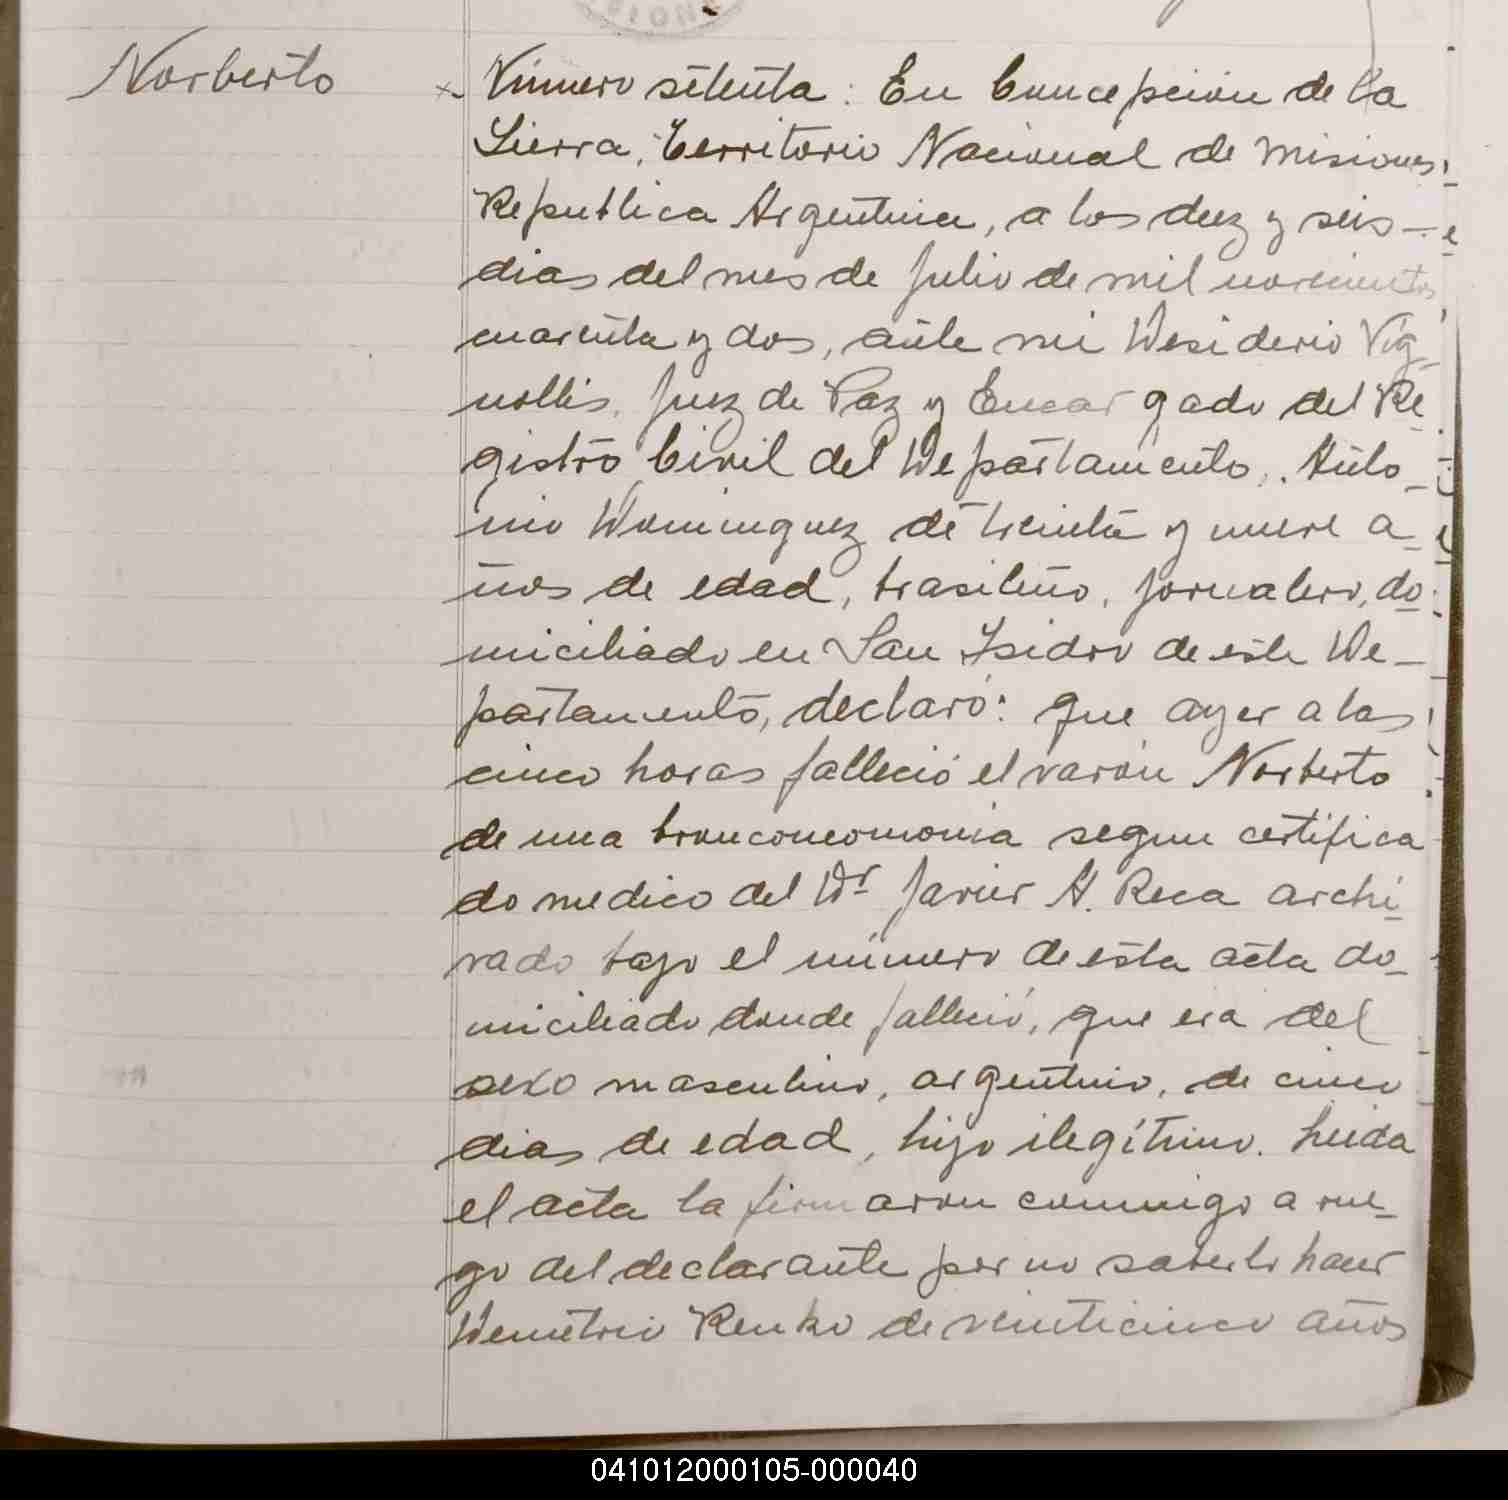 Norberto
Número setenta: En Concepción de la
Sierra, Territorio Nacional de Misiones
Republica Argentina, a los diez y seis
dias del mes de Julio de mil novecientos
cuarenta y dos, ante mi Desiderio Vig-
nolles, Juez de Paz y Encargado del Re-
gistro Civil del Departamento, Anto-
nio Dominguez de treinta y nueve a-
ños de edad, brasileño, jornalero, do-
miciliado en San Isidro de este De-
partamento, declaró: que ayer a las
cinco horas falleció el varón Norberto
de una bronconeomonia segun certifica
do medico del Dr Javier A. Reca archi-
vado bajo el número de esta acta do-
miciliado donde falleció, que era del
sexo masculino, argentino, de cinco
dias de edad, hijo ilegítimo. Leida
el acta la firmaron conmigo a rue-
go del declarante por no saberlo hacer
Demetrio Renko de veinticinco años
041012000105-000040